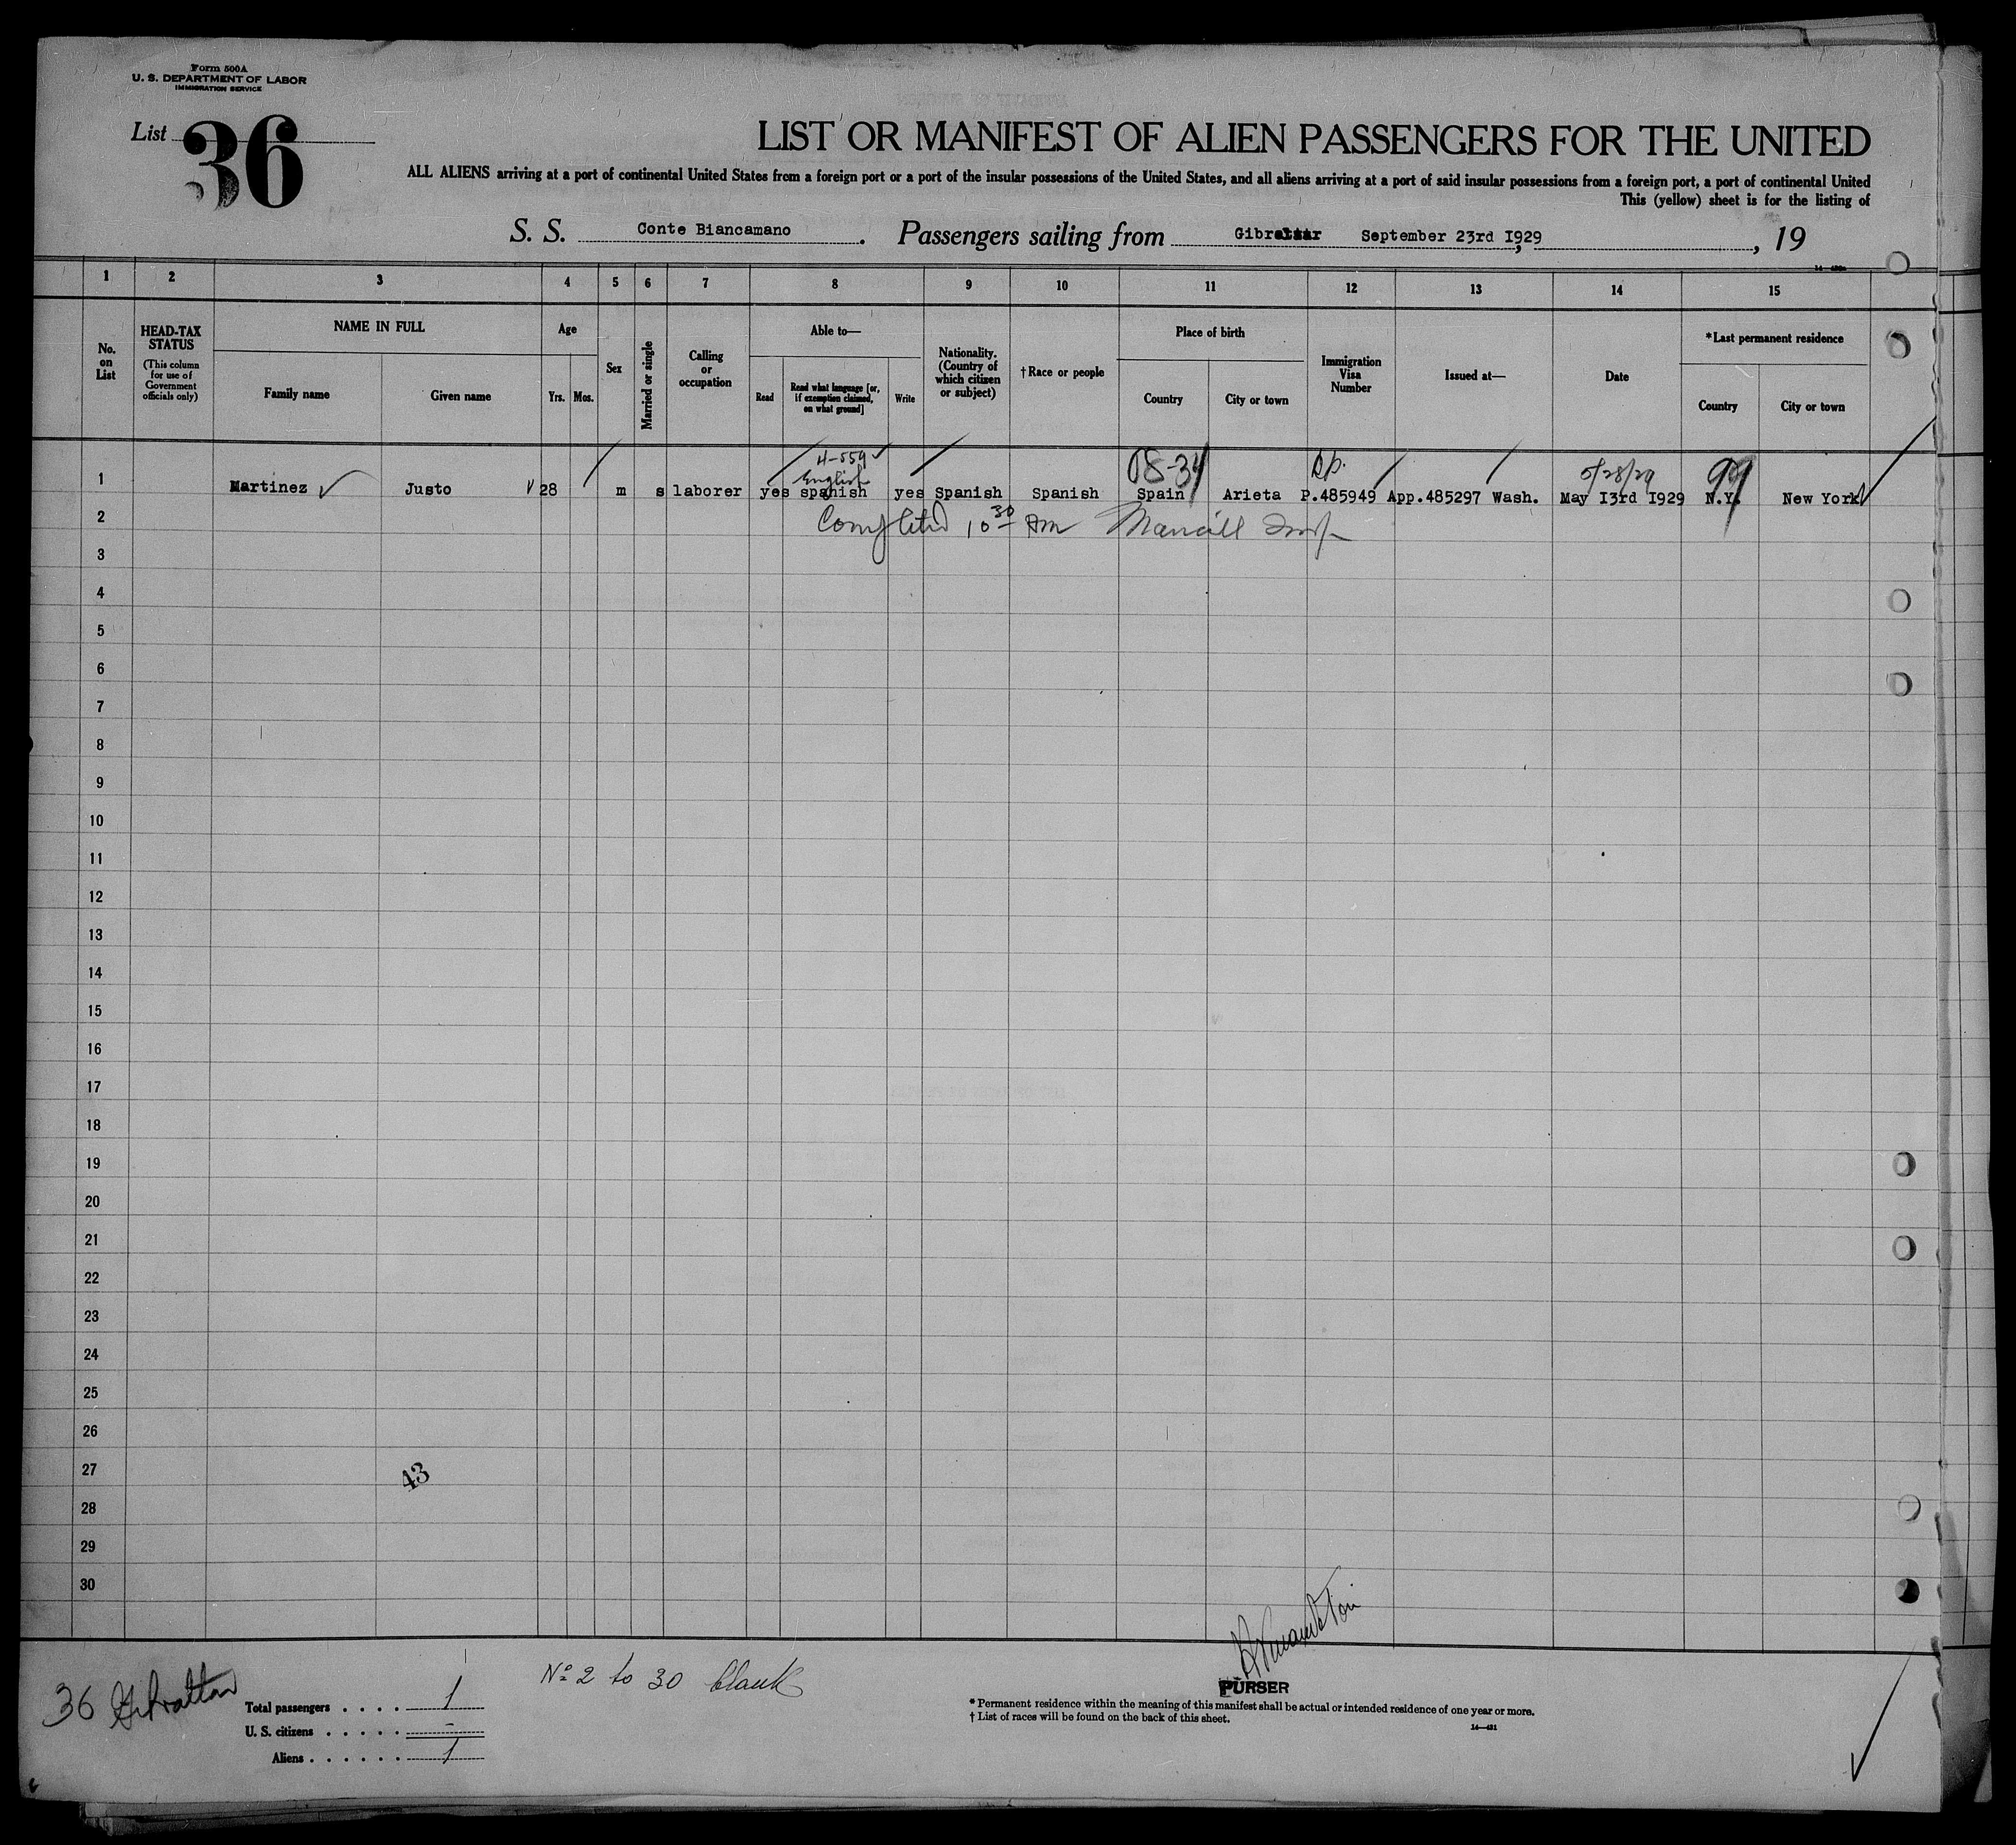 Form 500A
U. S. DEPARTMENT OF LABOR
IMMIGRATION SERVICE
List 36
LIST OR MANIFEST OF ALIEN PASSENGERS FOR THE UNITED
ALL ALIENS arriving at a port of continental United States from a foreign port or a port of the insular possessions of the United States, and all aliens arriving at a port of said insular possessions from a foreign port, a port of continental United
This (yellow) sheet is for the listing of
S. S. Conte Biancamano. Passengers sailing from Gibraltar September 23rd I929, 19
1 2 3 4 5 6 7 8 9 10 11 12 13 14 15
No. on List
HEAD-TAX STATUS
(This column for use of Government officials only)
NAME IN FULL
Family name Given name
Age
Yrs. Mos.
Sex
Married or single
Calling or occupation
Able to—
Read Read what language [or, if exemption claimed, on what ground] Write
Nationality. (Country of which citizen or subject)
†Race or people
Place of birth
Country City or town
Immigration Visa Number
Issued at—
Date
*Last permanent residence
Country City or town
4-559
English
5/28/29
1 Martinez Justo 28 m s laborer yes spanish yes Spanish Spanish Spain Arieta P.485949 App.485297 Wash. May I3rd I929 N.Y. New York
2 Completed 10 30 am
3
4
5
6
7
8
9
10
11
12
13
14
15
16
17
18
19
20
21
22
23
24
25
26
27 43
28
29
30
36 Gibraltar
Nº 2 to 30 blank
Total passengers . . . . 1
U. S. citizens . . . . . -
Aliens . . . . . . 1
PURSER
* Permanent residence within the meaning of this manifest shall be actual or intended residence of one year or more.
† List of races will be found on the back of this sheet.
14—431